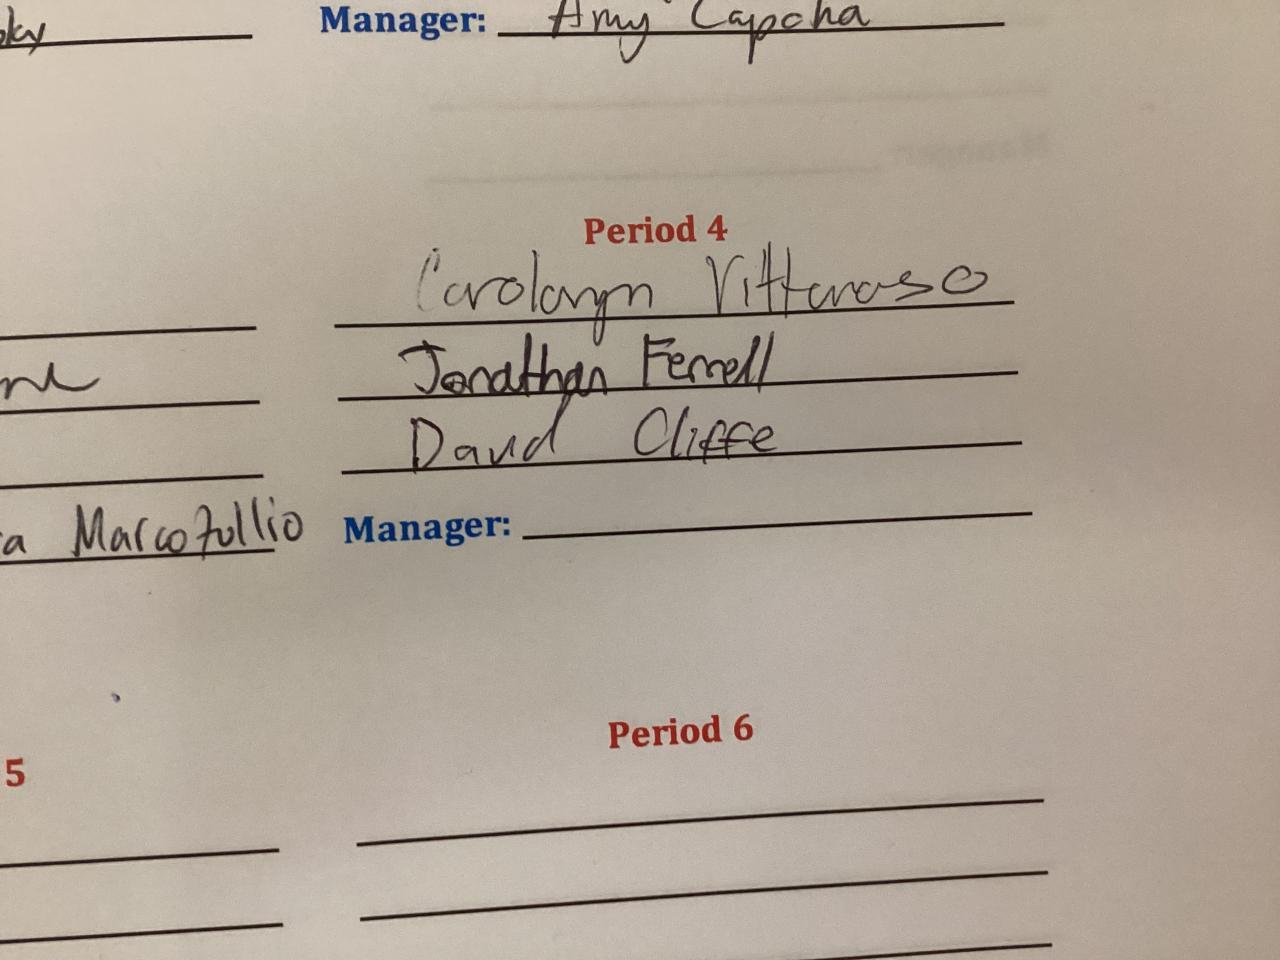 Manager: Amy Capcha
Period 4
Carolayn Vitteraso
Jonathan Ferrell
David Cliffe
Marcotullio Manager:
Period 6
5